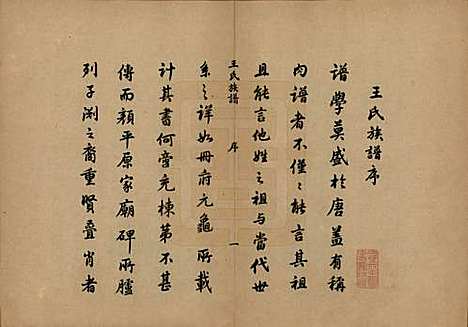 王氏族譜序
譜學莫盛於唐蓋有稱
肉譜者不僅〻能言其祖
且能言他姓之祖与當代世
王氏族譜 序 一
系之詳如冊府元龜所載
計其書何啻充棟第不甚
傳而顏平原家廟碑所臚
列子淵之裔重賢疊肖者